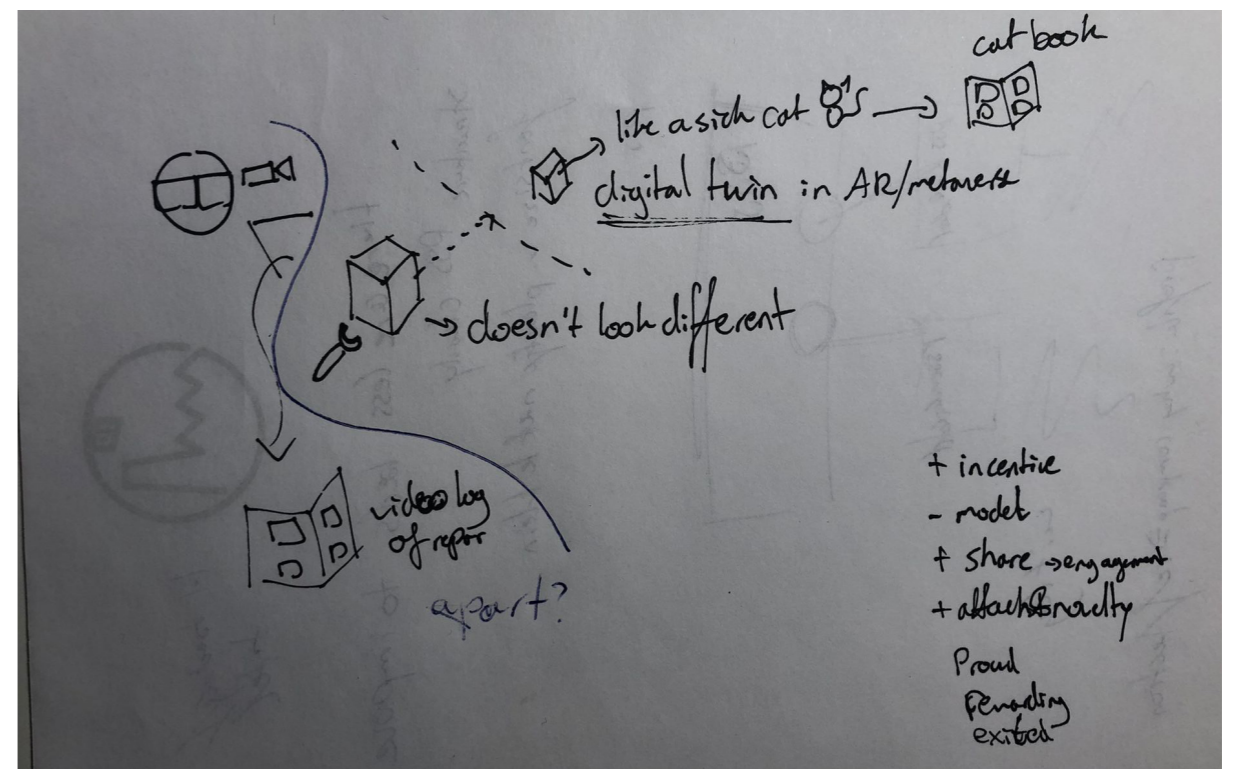 cat book
like a sick cat
digital twin in AR/metaverse
doesn't look different
video log
of repair
apart?
+ incentive
- model
+ share → engagement
+ attach & novelty
Proud
exited